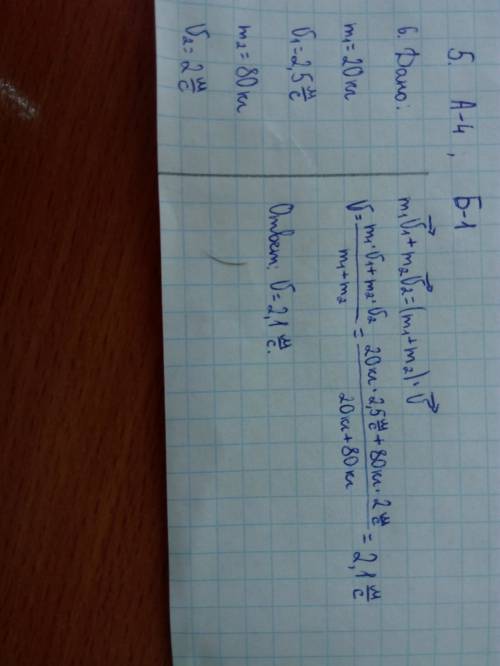 5. А-4, Б-1
6. Дано:
m₁=20кг
v₁=2,5 м/с
m₂=80кг
v₂=2 м/с
m₁v⃗₁+m₂v⃗₂=(m₁+m₂)·v⃗
v=(m₁·v₁+m₂·v₂)/(m₁+m₂)=(20кг·2,5 м/с+80кг·2 м/с)/(20кг+80кг)=2,1 м/с
Ответ: v=2,1 м/с.